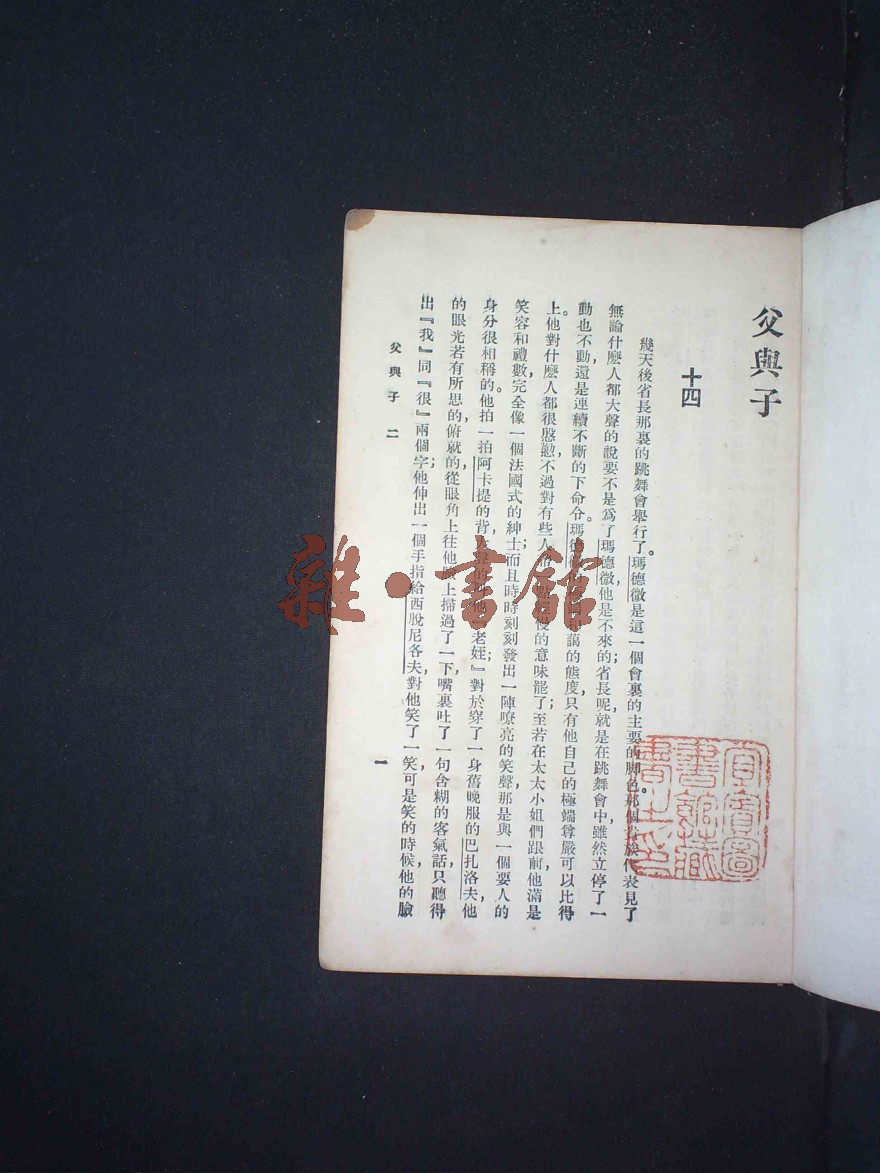 父與子
十四
幾天後省長那裏的跳舞會舉行了。瑪德微是這一個會裏的主要的脚色。那個貴族代表見了
無論什麽人都大聲的說要不是爲了瑪德微,他是不來的;省長呢,就是在跳舞會中,雖然立停了一
動也不動還是連續不斷的下命令。瑪德微的藹的態度,只有他自己的極端尊嚴可以比得
上。他對什麽人都很慇懃,不過對有些人慢的意味罷了;至若在太太小姐們跟前,他滿是
笑容和禮數,完全像一個法國式的紳士;而且時時刻刻發出一陣嘹亮的笑聲,那是與一個要人的
身分很相稱的。他拍一拍阿卡提的背,他『老姪』;對於穿了一身舊晚服的巴扎洛夫,他
的眼光若有所思的,俯就的,從眼角上往他上掃過了一下,嘴裏吐了一句含糊的客氣話,只聽得
出『我』同『很』兩個字;他伸出一個手指給西脫尼各夫,對他笑了一笑,可是笑的時候,他的臉
父與子 二
一
雜·書館